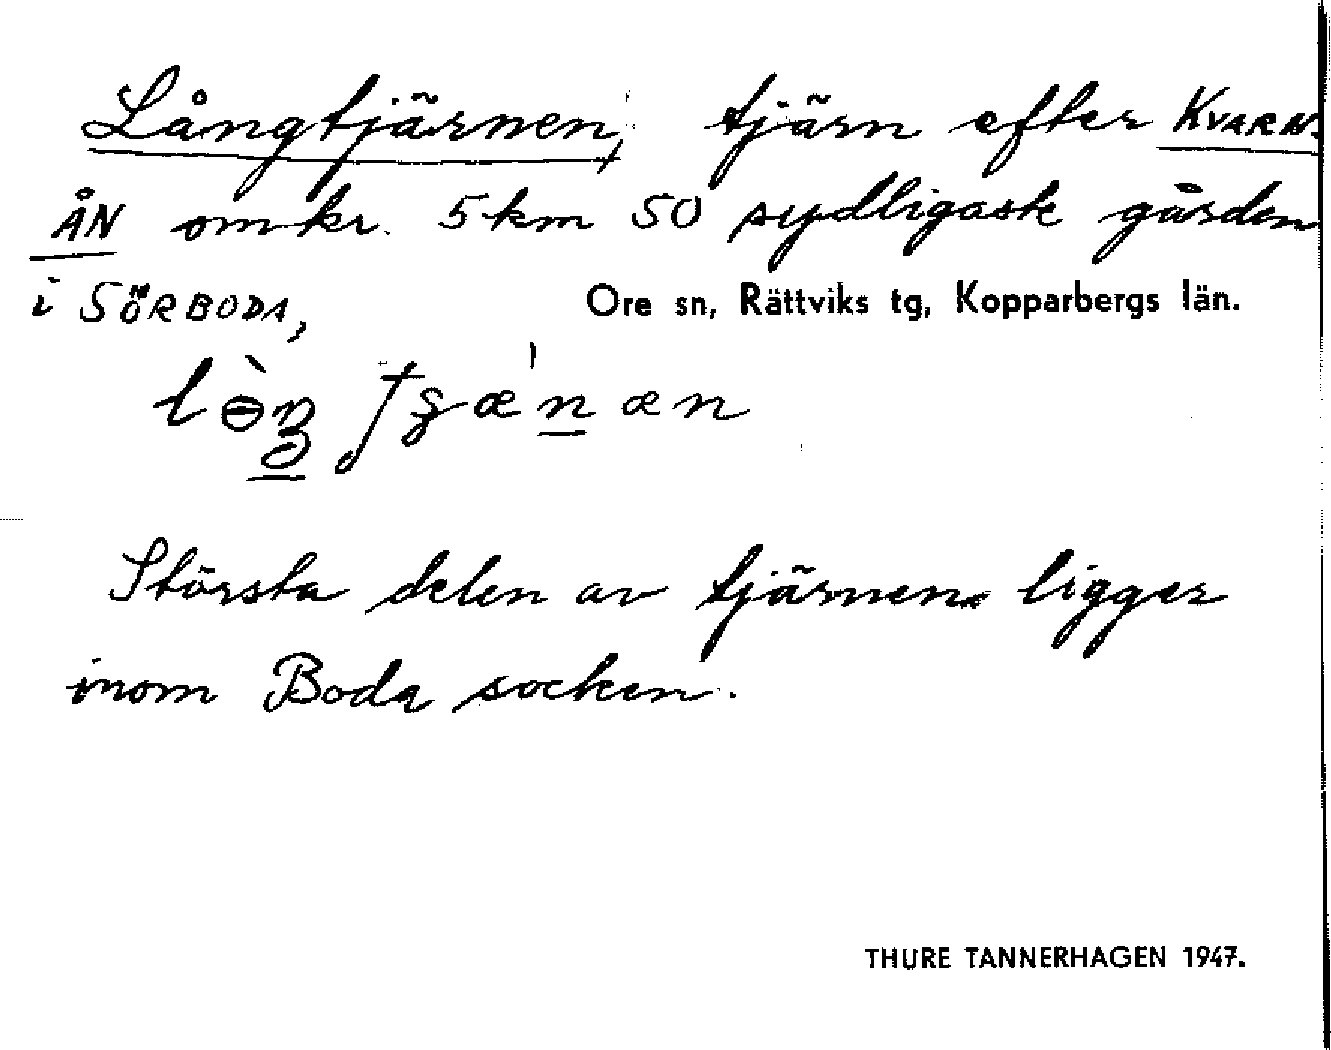 Långtjärnen, tjärn efter KVARN-
ÅN omkr. 5 km SO sydligaste gården
i SÖRBODA, Ore sn, Rättviks tg, Kopparbergs län.
Största delen av tjärnen ligger
inom Boda socken.
THURE TANNERHAGEN 1947.